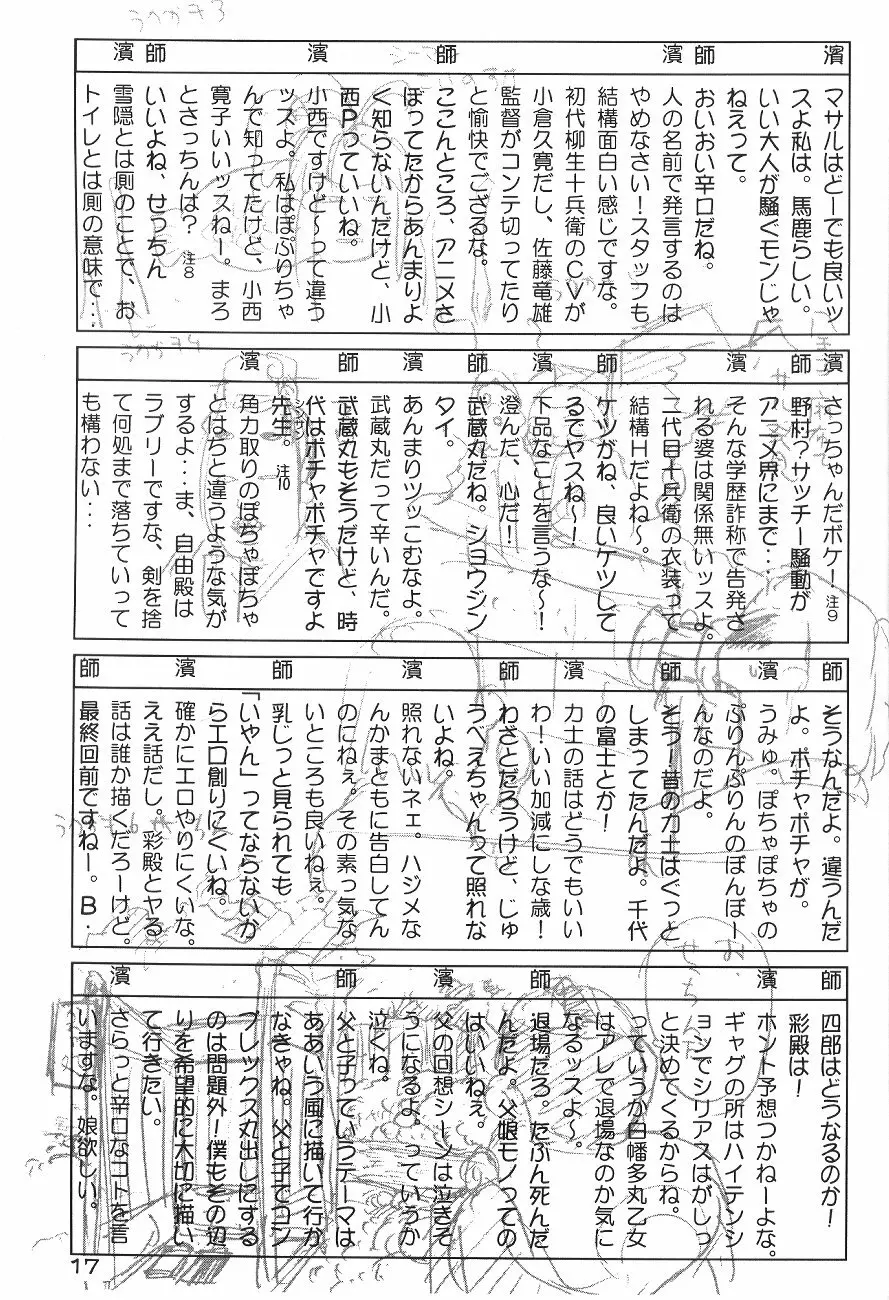 濱
マサルはどーでも良いッ
スよ私は。馬鹿らしい。
いい大人が騒ぐモンじゃ
ねえって。
師
おいおい辛口だね。
濱
人の名前で発言するのは
やめなさい！スタッフも
結構面白い感じですな。
初代柳生十兵衛のＣＶが
小倉久寛だし、佐藤竜雄
監督がコンテ切ってたり
と愉快でござるな。
師
ここんところ、アニメさ
ぼってたからあんまりよ
く知らないんだけど、小
西Ｐっていいね。
濱
小西ですけど～って違う
ッスよ。私はぽぷりちゃ
んで知ってたけど、小西
寛子いいッスねー。まろ
とさっちんは？ 注8
師
いいよね、せっちん
濱
雪隠とは厠のことで、お
トイレとは厠の意味で・・・
さっちゃんだボケ！ 注9
師
野村？サッチー騒動が
アニメ界にまで・・・
濱
そんな学歴詐称で告発さ
れる婆は関係無いッスよ。
師
二代目十兵衛の衣装って
結構Ｈだよね～。
濱
ケツがね、良いケツして
るでヤスね～！
師
下品なことを言うな～！
澄んだ、心だ！
濱
武蔵丸だね。ショウジン
タイ。
師
あんまりツッこむなよ。
武蔵丸だって辛いんだ。
濱
武蔵丸もそうだけど、時
代はポチャポチャですよ
先生。 注10
シンサン
師
角力取りのぽちゃぽちゃ
とはちと違うような気が
するよ・・・ま、自由殿は
ラブリーですな、剣を捨
て何処まで落ちていって
も構わない・・・
師
そうなんだよ。違うんだ
よ。ポチャポチャが。
濱
うみゅ。ぽちゃぽちゃの
ぷりんぷりんのぼんぼー
んなのだよ。
師
そう！昔の力士はぐっと
しまってたんだよ。千代
の富士とか！
濱
力士の話はどうでもいい
わ！いい加減にしな歳！
師
わざとだろうけど、じゅ
うべえちゃんって照れな
いよね。
濱
照れないネェ。ハジメな
んかまともに告白してん
のにねぇ。その素っ気な
いところも良いねぇ。
師
乳じっと見られても
「いやん」ってならないか
らエロ創りにくいね。
濱
確かにエロやりにくいな。
ええ話だし。彩殿とヤる
話は誰か描くだろーけど。
師
最終回前ですねー。Ｂ・
師
四郎はどうなるのか！
彩殿は！
濱
ホント予想つかねーよな。
ギャグの所はハイテンシ
ョンでシリアスはがしっ
と決めてくるからね。
師
っていうか白幡多丸乙女
はアレで退場なのか気に
なるッスよ～。
濱
退場だろ。たぶん死んだ
んだよ。父娘モノっての
はいいねぇ。
師
父の回想シーンは泣きそ
うになるよ。っていうか
泣くね。
濱
父と子っていうテーマは
ああいう風に描いて行か
なきゃね。父と子でコン
プレックス丸出しにする
のは問題外！僕もその辺
りを希望的に大切に描い
て行きたい。
師
さらっと辛口なコトを言
いますな。娘欲しい。
17